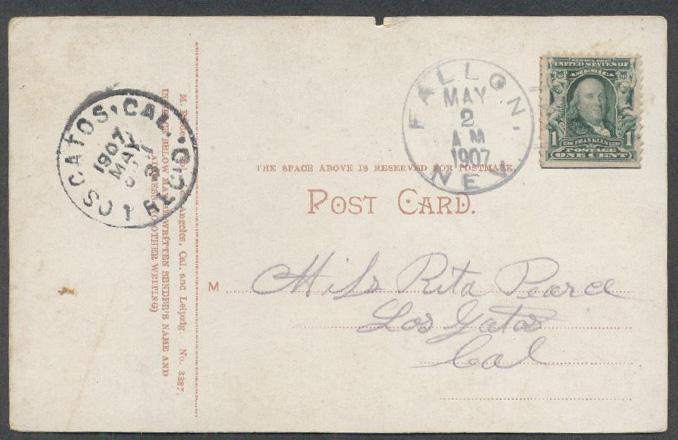 LOS GATOS, CAL. REC'D
1907
MAY
3
M. Angeles, Cal. and Leipzig No. 3227.
BELOW MAY WRITTEN SENDER'S NAME AND
(NO OTHER WRITING)
FALLON,
MAY
2
AM
1907
NEV
UNITED STATES OF
AMERICA
1 1
POSTAGE
ONE CENT
THE SPACE ABOVE IS RESERVED FOR POSTMARK.
POST CARD.
M Miss Rita Pearce
Los Gatos
Cal